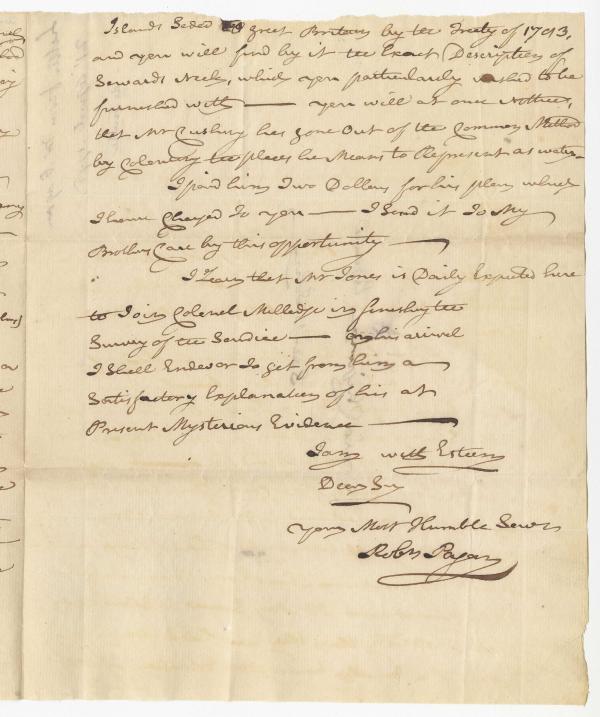 Islands Seded great Brittain by the Treaty of
and you will find by it the Exact Description of
Sewards Neck, which you particularly wished to be
furnished with — you will at once Nottice,
that Mr has gone Out of the Common Method
by Colouring the places he Means to Represent as water —
I paid him Two Dollars for his plan which
I have Charged To you — I Send it To My
Brothers Care by this opportunity —
I Learn that Mr Jones is Daily Expected here
to Join Colonel Milledge in finishing the
Survey of the Scudiac — on his arrival
I Shall Endevor To get from him a
Satisfactory Explanation of his at
Present Mysterious Evidence —
I am with Esteem
Dear Sir
your Most Humble Servt
Robt Pagan